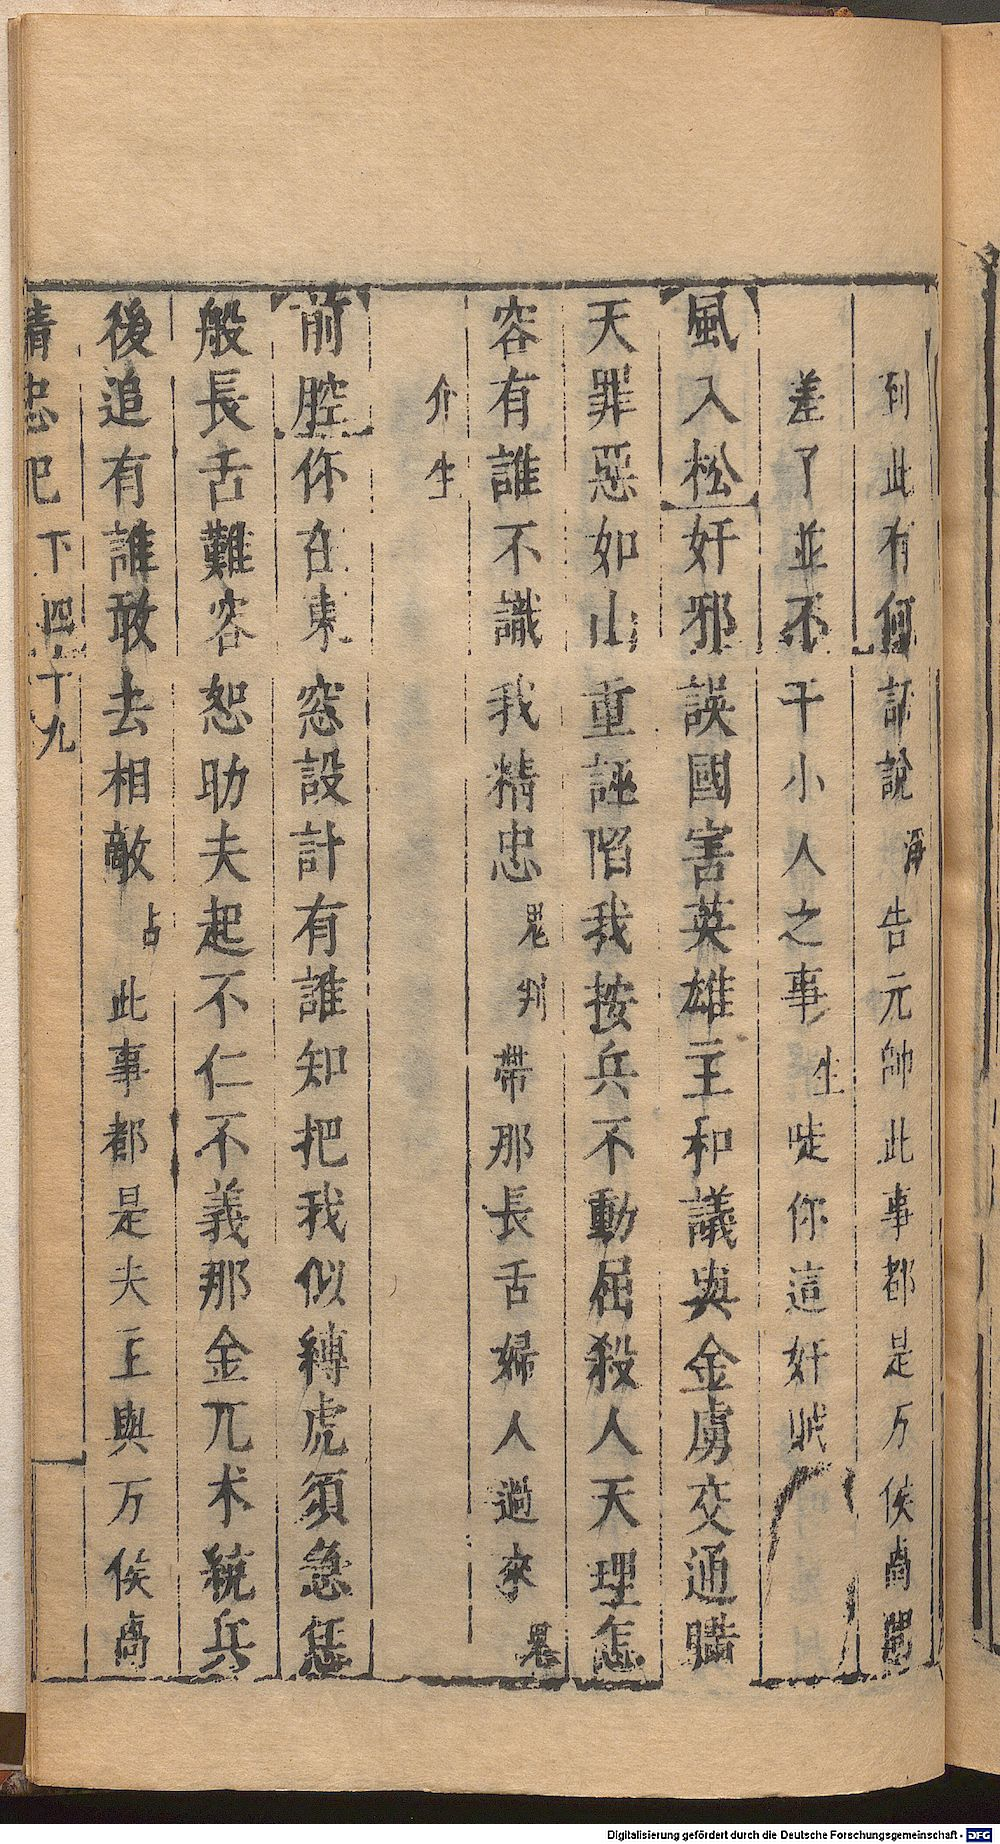 到此有何話說淨告元帥此事都是万俟卨
差了並不干小人之事生唗你這奸賊
風入松奸邪誤國害英雄主和議與金虜交通瞞
天罪惡如山重誣陷我按兵不動屈殺人天理怎
容有誰不識我精忠鬼判帶那長舌婦人過來鬼
介生
前腔你在東窓設計有誰知把我似縛虎須急恁
般長舌難容恕助夫起不仁不義那金兀术統兵
後追有誰敢去相敵占此事都是夫主與万俟卨
精忠記 下 四十九
Digitalisierung gefördert durch die Deutsche Forschungsgemeinschaft - DFG